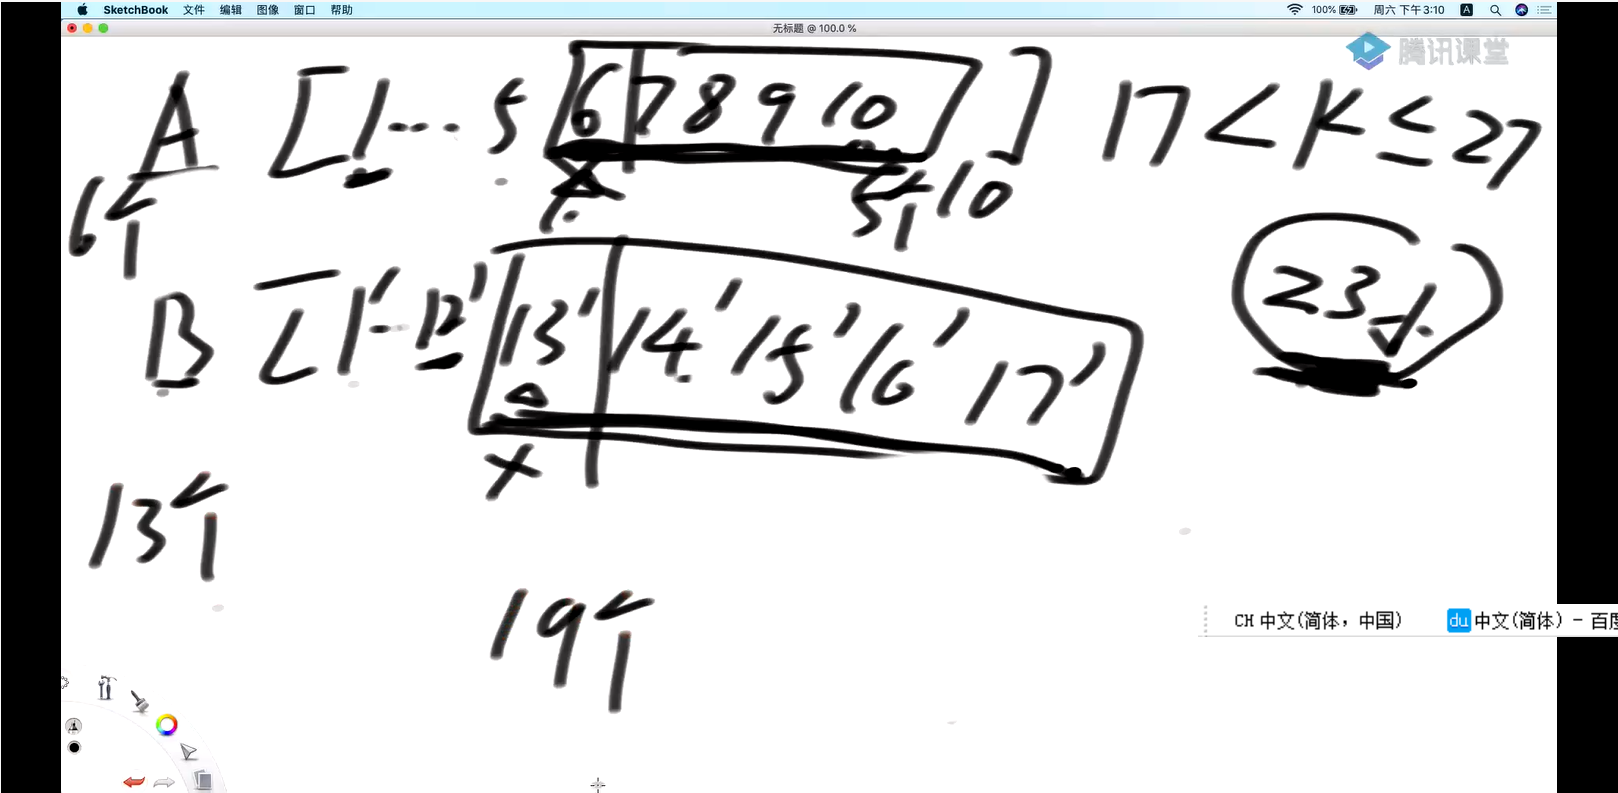 SketchBook 文件 编辑 图像 窗口 帮助 100% 周六 下午3:10 A
无标题 @ 100.0 %
腾讯课堂
A [1... 5 6 7 8 9 10 ] 17 < K ≤ 27
6个 5个 10
B [1' 12' 13' 14' 15' 16' 17'
23小
13个
19个
CH 中文(简体，中国) du 中文(简体) - 百度